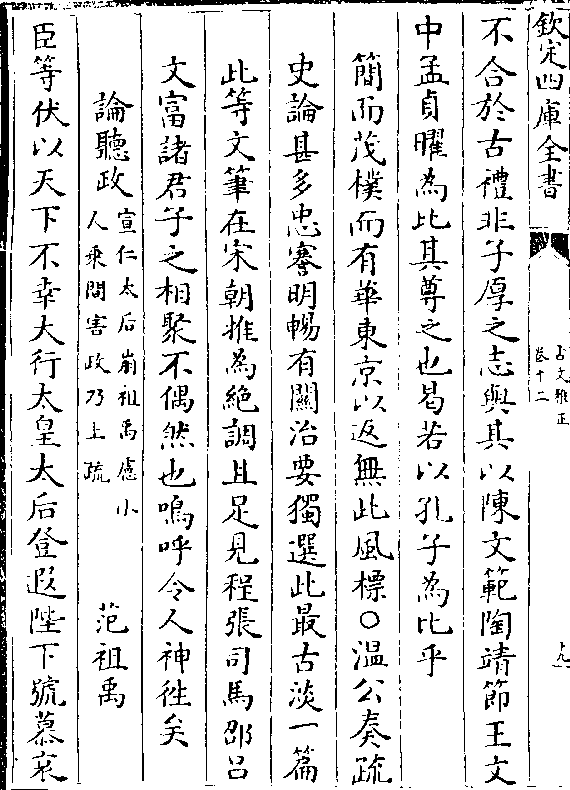 欽定四庫全書
古文雅正
卷十二
十九
不合於古禮非子厚之志與其以陳文範陶靖節王文
中孟貞曜為比其尊之也曷若以孔子為比乎
簡而茂樸而有華東京以返無此風標○溫公奏疏
史論甚多忠謇明暢有關治要獨選此最古淡一篇
此等文筆在宋朝推為絕調且足見程張司馬邵呂
文富諸君子之相聚不偶然也嗚呼令人神徃矣
論聽政
宣仁太后崩祖禹慮小
人乘間害政乃上疏
范祖禹
臣等伏以天下不幸大行太皇太后登遐陛下號慕哀